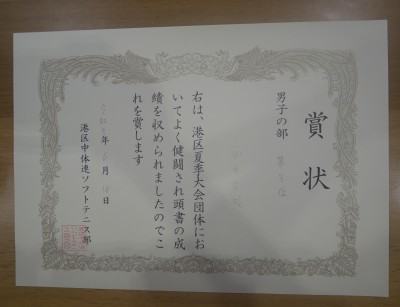 賞状
男子の部
右は、港区夏季大会団体にお
いてよく健闘され頭書の成
績を収められましたのでこ
れを賞します
年 月 日
港区中体連ソフトテニス部